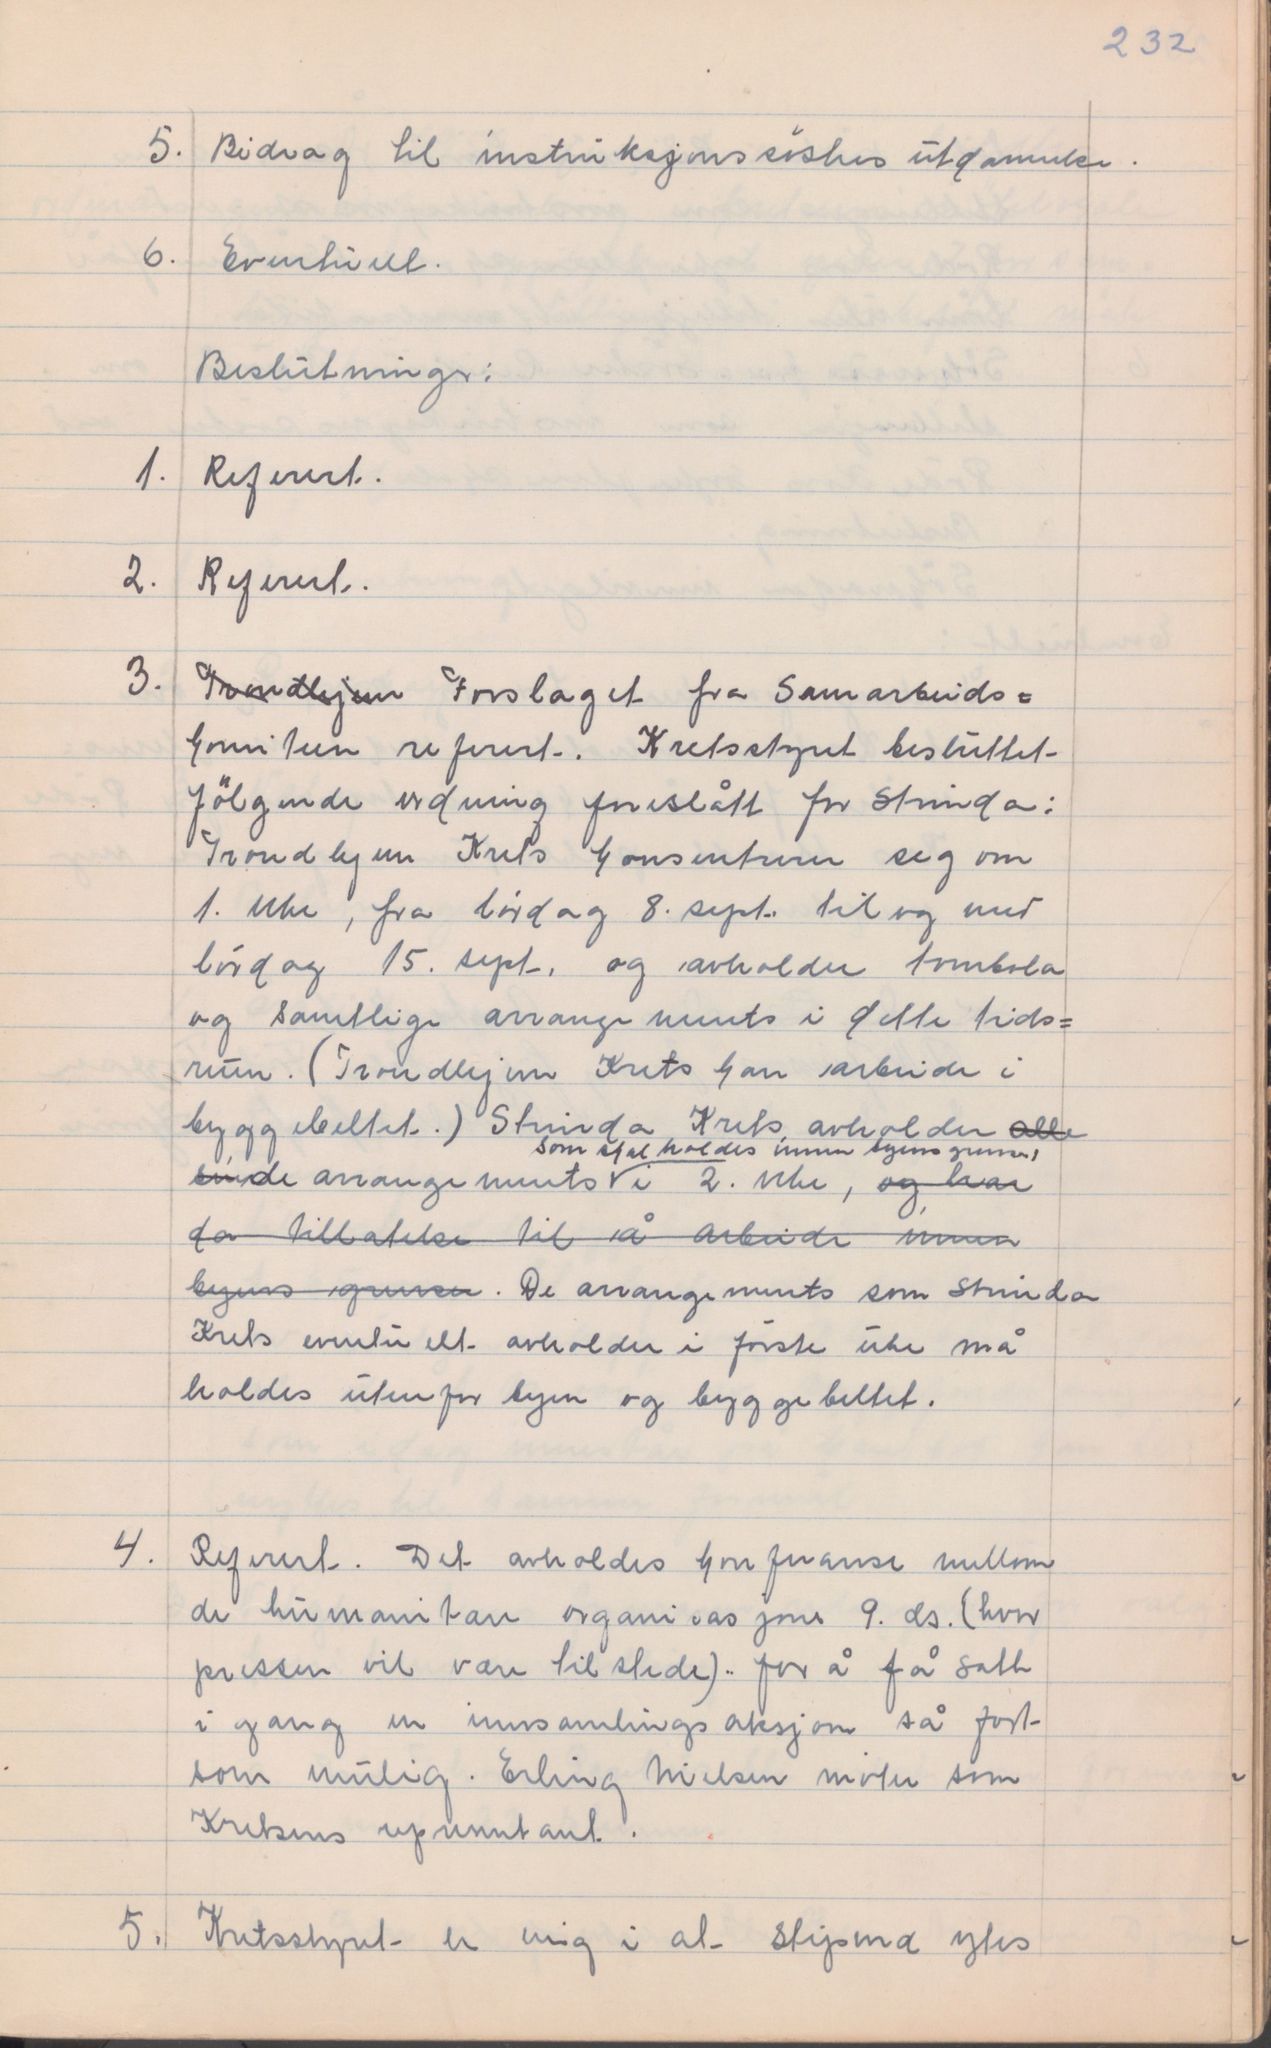 232
5. Bidrag til instruksjonssøstres utdannelse.
6. Eventuelt.
Beslutninger:
1. Referert.
2. Referert.
3. Trondhjem Forslaget fra Samarbeids=
komiteen referert. Kretsstyret besluttet
følgende ordning foreslått for Strinda:
Trondhjem Krets konsentrerer seg om
1. uke, fra lørdag 8. sept. til og med
lørdag 15. sept. og avholder tombola
og samtlige arrangements i dette tids=
rum. (Trondhjem Krets kan arbeide i
byggebeltet.) Strinda Krets avholder alle
som skal holdes innen byens grenser,
sine de arrangements i 2. uke, og har
da tillatelse til å arbeide innen
byens grenser. De arrangements som Strinda
Krets eventuelt avholder i første uke må
holdes utenfor byen og byggebeltet.
4. Referert. Det avholdes konferanse mellom
de humanitære organisasjoner 9. ds. (hvor
pressen vil være tilstede).. for å få satt
i gang en innsamlingsaksjon så fort
som mulig. Erling Nielsen møter som
Kretsens representant.
5. Kretsstyret er enig i at stipend ytes